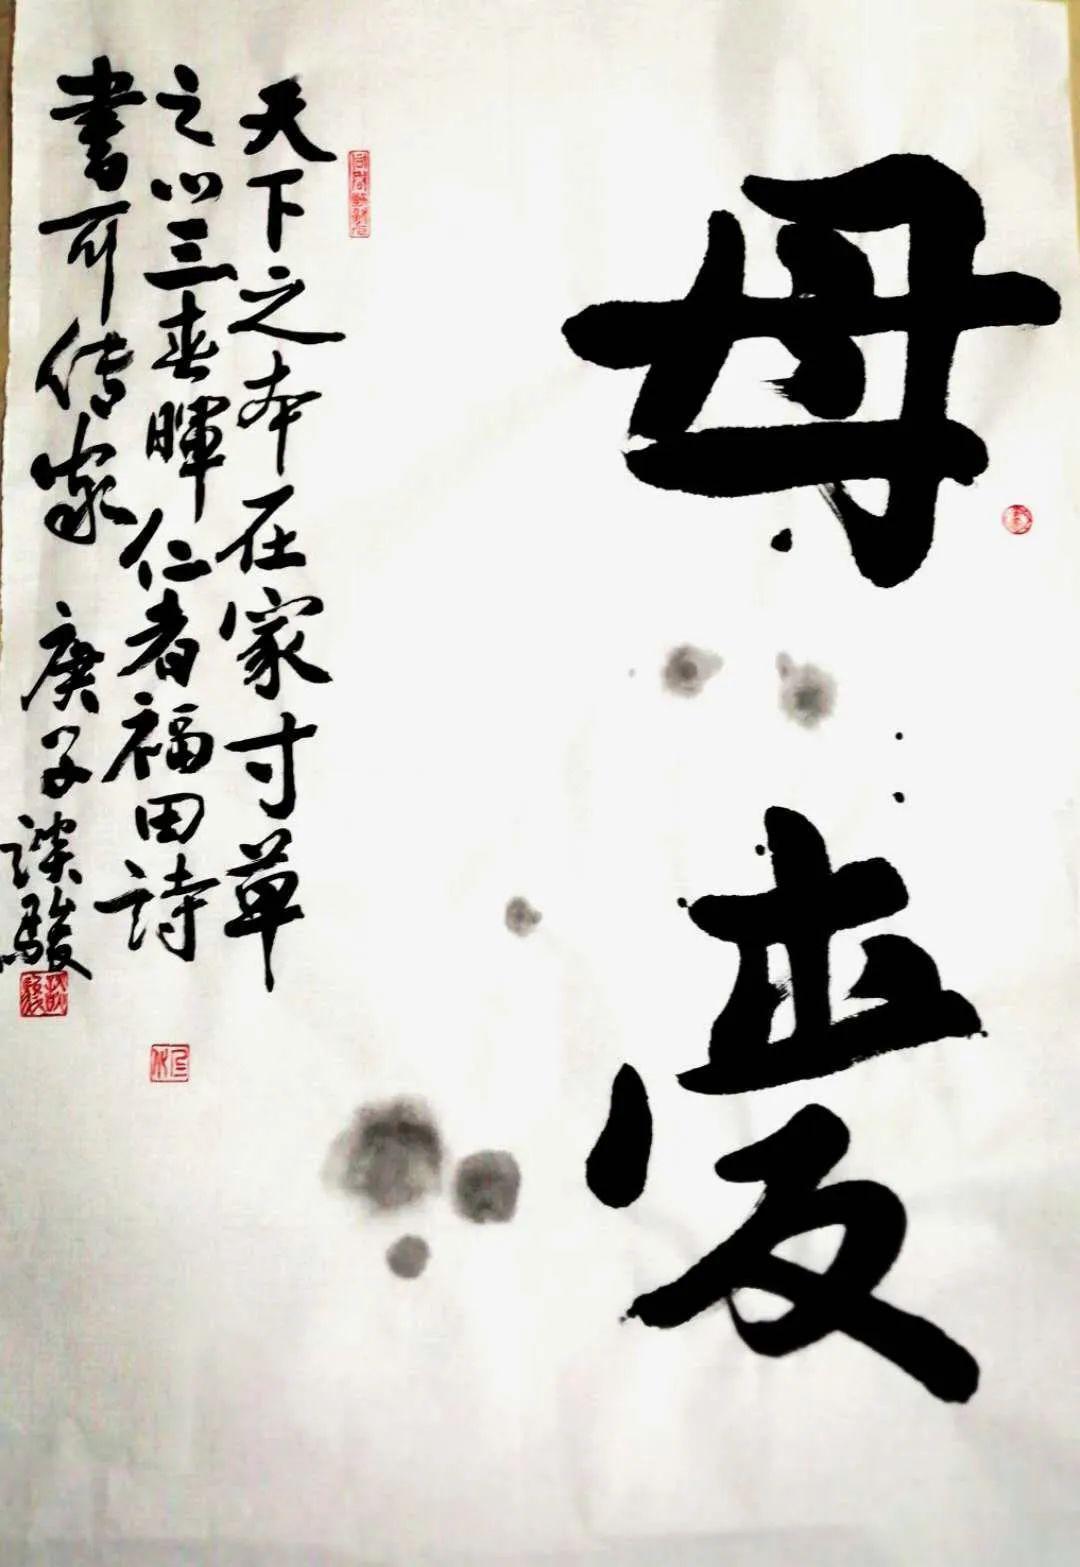 母愛
天下之本在家寸草
之心三春暉仁者福田詩
書可传家 庚子談駿